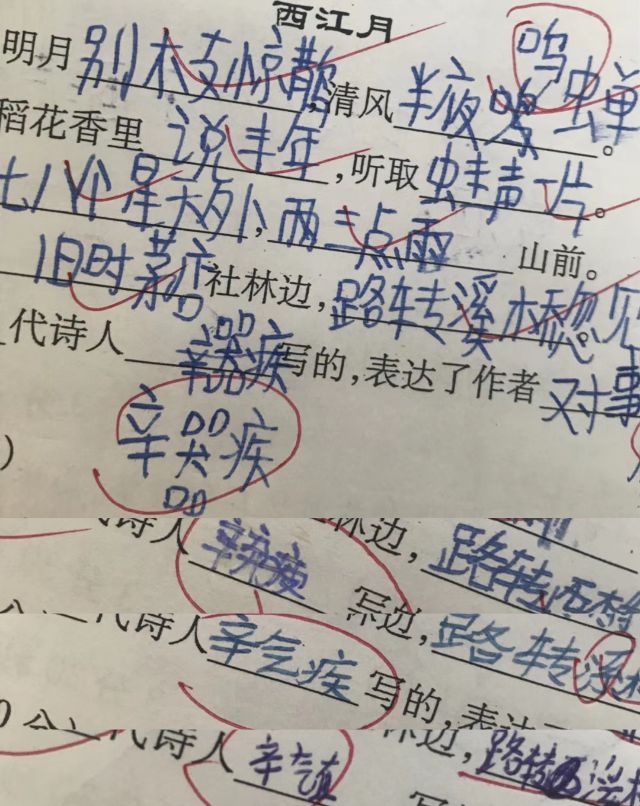 西江月
鸣
明月别木支惊散,清风半夜鸣虫单。
稻花香里说丰年,听取虫丰声一片。
七八个星天外,两三点雨山前。
旧时茅店社林边,路转溪木桥忽见。
代诗人辛器疾写的,表达了作者对事
辛器疾
代诗人 林边,路转西桥
代诗人辛气疾写的,表达 边,路转溪桥
0分 代诗人辛 边,路转